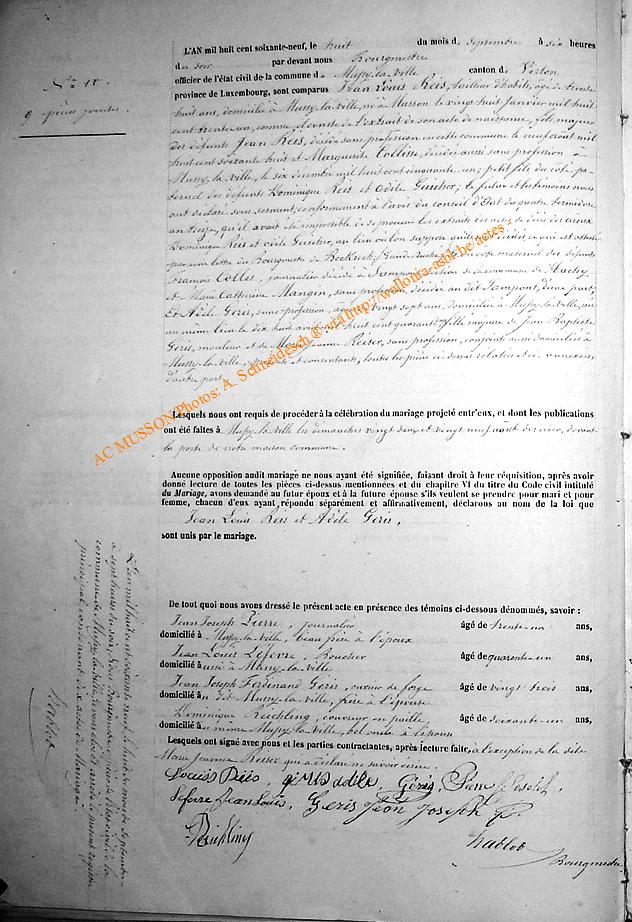 N° 10.
9 pièces jointes.
L'AN mil huit cent soixante-neuf, le huit du mois de Septembre à six heures
du soir par devant nous Bourgmestre
officier de l'état civil de la commune de Mussy-la-Ville canton de Virton
province de Luxembourg, sont comparus Jean Louis Reis, tailleur d'habits, âgé de trente
huit ans, domicilié à Mussy-la-ville, né à Musson le vingt huit Janvier mil huit
cent trente un, comme il conste de l'extrait de son acte de naissance, fils majeur
des défunts Jean Reis, décédé sans profession en cette commune le neuf août mil
huit cent soixante huit et Marguerite Collisse, décédée aussi sans profession à
Mussy-la-ville, le six décembre mil huit cent cinquante un; petit fils du côté pa-
ternel des défunts Dominique Reis et Odile Guicher; le futur et les témoins nous
ont déclaré sous serment, conformément à l'avis du conseil d'Etat du quatre thermidor
an treize, qu'il avait été impossible de se procurer les extraits des actes de décès des aïeux
Dominique Reis et Odile Guicher, au lieu où l'on suppose qu'ils sont décédés, ce qui est attesté
par une lettre du Bourgmestre de
François Collis, journalier décédé à Sampont, section de la commune de Hachy
et Marie Catherine Mangin, sans profession, décédée au dit Sampont, d'une part;
Et Adèle Géris, sans profession, âgée de vingt sept ans, domiciliée à Mussy-la-ville, née
au même lieu le dix huit huit cent quarante fille majeure de Jean Baptiste
Géris, mouleur et de Marie Jeanne Reiser, sans profession, conjoints aussi domiciliés à
Mussy-la-ville, présents et consentants, toutes les pièces ci-dessus relatées et ci-annexées
d'autre part.
AC MUSSON Photos: A. Schneidesch ® via http://wallonia-asbl.be/actes
Lesquels nous ont requis de procéder à la célébration du mariage projeté entr'eux, et dont les publications
ont été faites à Mussy-la-ville les dimanches vingt deux et vingt neuf août dernier, devant
la porte de notre maison commune.
Aucune opposition audit mariage ne nous ayant été signifiée, faisant droit à leur réquisition, après avoir
donné lecture de toutes les pièces ci-dessus mentionnées et du chapitre VI du titre du Code civil intitulé
du Mariage, avons demandé au futur époux et à la future épouse s'ils veulent se prendre pour mari et pour
femme, chacun d'eux ayant répondu séparément et affirmativement, déclarons au nom de la loi que
Jean Louis Reis et Adèle Géris,
sont unis par le mariage.
De tout quoi nous avons dressé le présent acte en présence des témoins ci-dessous dénommés, savoir :
Jean Joseph Pierre, journalier âgé de trente-un ans,
domicilié à Mussy-la-ville, beau frère à l'époux
Jean Louis Lefèvre, Boucher âgé de quarante-un ans,
domicilié aussi à Mussy-la-ville
Jean Joseph Ferdinand Géris, ouvrier de forge âgé de vingt trois ans,
domicilié au dit Mussy-la-ville, frère à l'épouse
Dominique Reichling, âgé de soixante-un ans,
domicilié au même Mussy-la-ville, bel oncle à l'époux
Lesquels ont signé avec nous et les parties contractantes, après lecture faite, à l'exception de la dite
Marie Jeanne Reiser, qui a déclaré ne savoir écrire.
Louis Reis, Géris, Piere Joseph
Lefevre Jean Louis, Geris Jean Joseph F.
Reichling
Bourgmestre
L'an mil huit cent soixante neuf, le huit du mois de Septembre
à sept heures du soir, Nous Bourgmestre officier de l'état civil de la
commune de Mussy-la-ville, avons clos et arrêté le présent registre
principal contenant dix actes de Mariage.